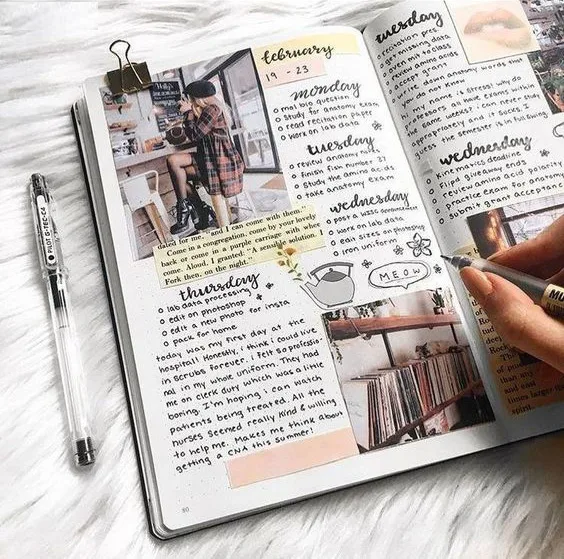 february
19 - 23
monday
o mol bio question
o study for anatomy exam
o read recitation paper
o work on lab data
tuesday
o review anatomy notes
o finish fish number 27
o study the amino acids
o take anatomy exam
wednesday
o work on lab data
o edit sizes on photoshop
o iron uniform
MEOW
dated for me, and I can come with them."
Come in a congregation, come by your lovely
back or come in a purple carriage with whee
come. Aloud, I granted: "A sensible solution.
Fork then, on the night."
thursday
o lab data processing
o edit on photoshop
o edit a new photo for insta
o pack for home
today was my first day at the
hospital! Honestly, i think i could live
in scrubs forever. i felt so professio-
nal in my whole uniform. They had
me on clerk duty which was a little
boring. I'm hoping i can watch
patients being treated. All the
nurses seemed really kind & willing
to help me. Makes me think about
getting a CNA this summer!
tuesday
o recitation pres
o get missing data
o even mit to class
o review amino acids
accept grant
write down anatomy words that
you do not know
my name is stress! why do
professors all have exams within
the same week? i can never
appropriately and it sucks. I
guess the semester is in full swing
wednesday
o kinematics deadline
o Flipd giveaway ends
o review amino acid polarity
o practice exam for anatomy
o submit grant acceptance
PILOT G-TEC-C4